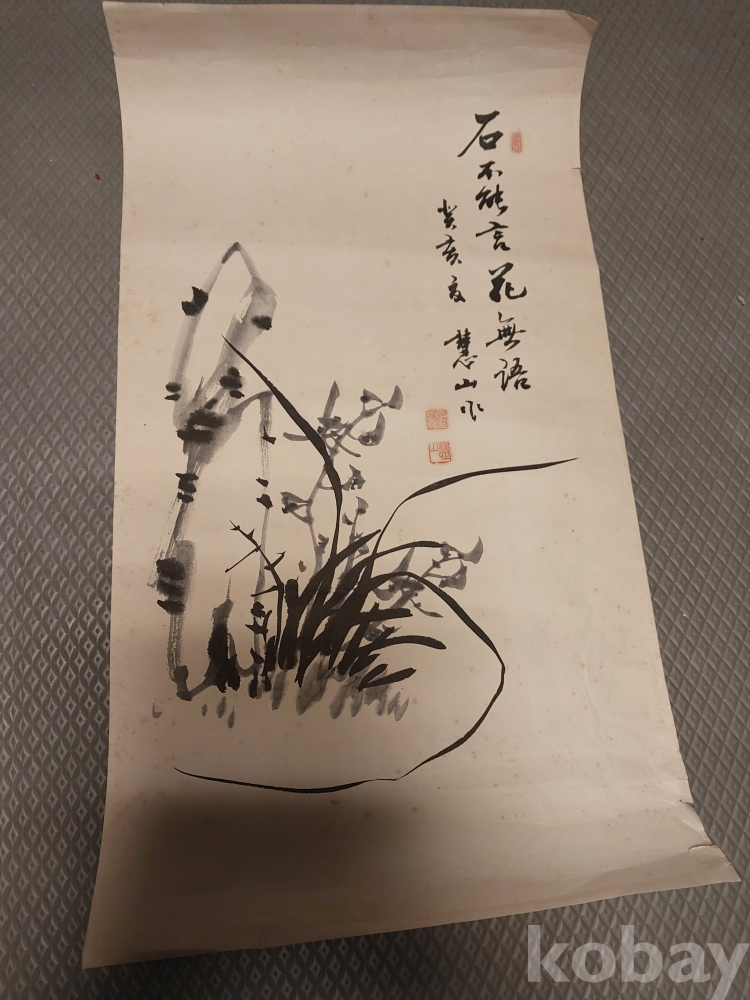 石不能言花無語
癸亥夏 慧山作
kobay